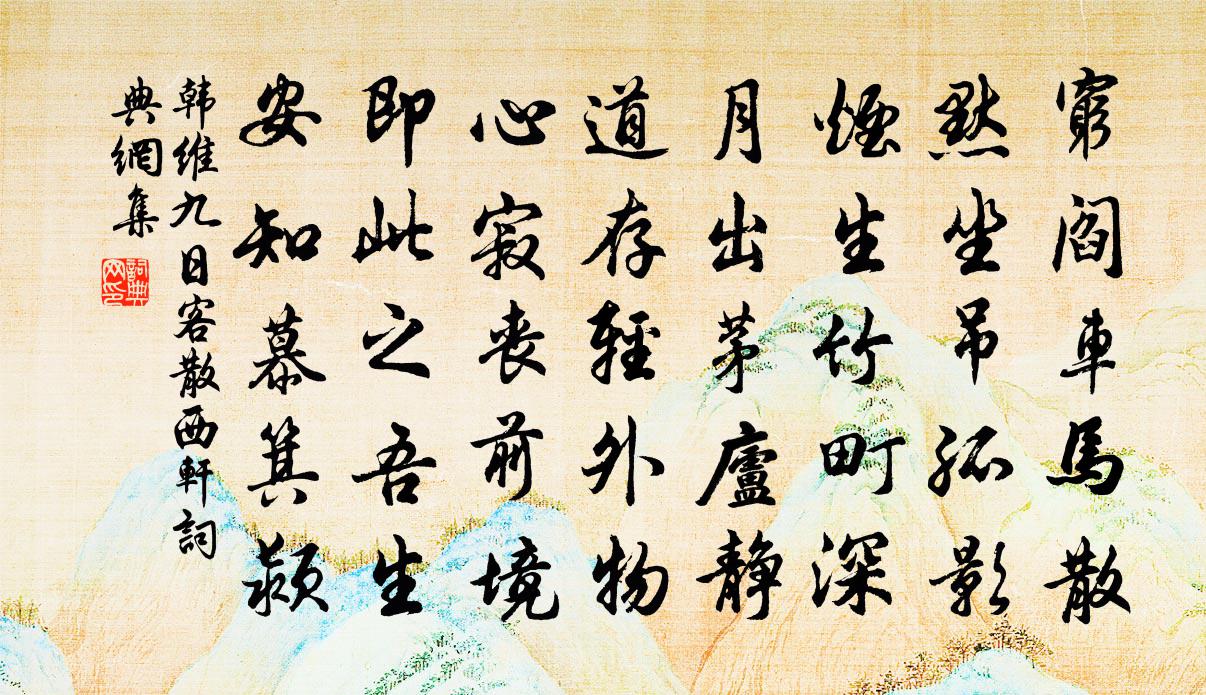 窮閻車馬散
黙坐吊孤影
煙生竹町深
月出茅廬静
道存輕外物
心寂喪前境
即此之吾生
安知慕箕潁
韩維九日客散西軒詞
典網集
詞典网印